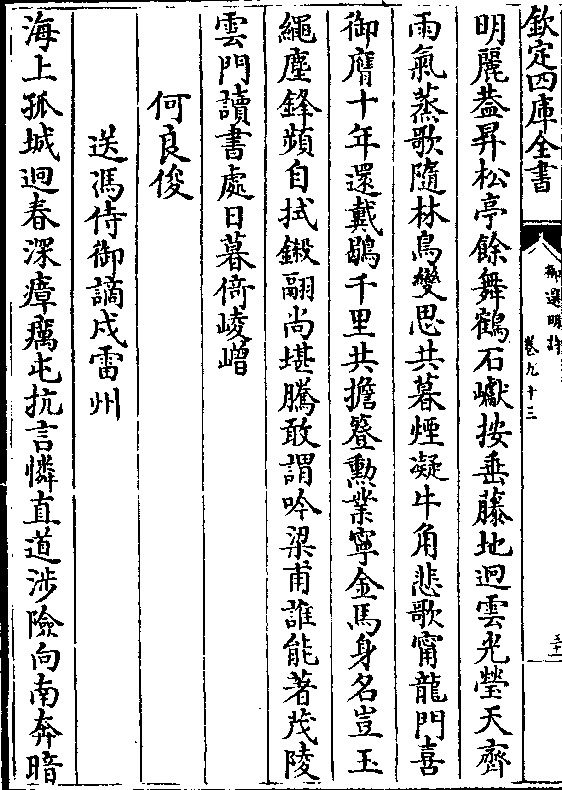 欽定四庫全書
御選明詩
卷九十三
五十一
明麗葢昇松亭餘舞鶴石巘按垂藤地迥雲光瑩天齊
雨氣蒸歌隨林鳥變思共暮煙凝牛角悲歌甯龍門喜
御膺十年還戴鶡千里共擔簦勳業寧金馬身名豈玉
繩塵鋒頻自拭鎩翮尚堪騰敢謂吟梁甫誰能著茂陵
雲門讀書處日暮倚崚嶒
何良俊
送馮侍御謫戍雷州
海上孤城迥春深瘴癘屯抗言憐直道涉險向南奔暗